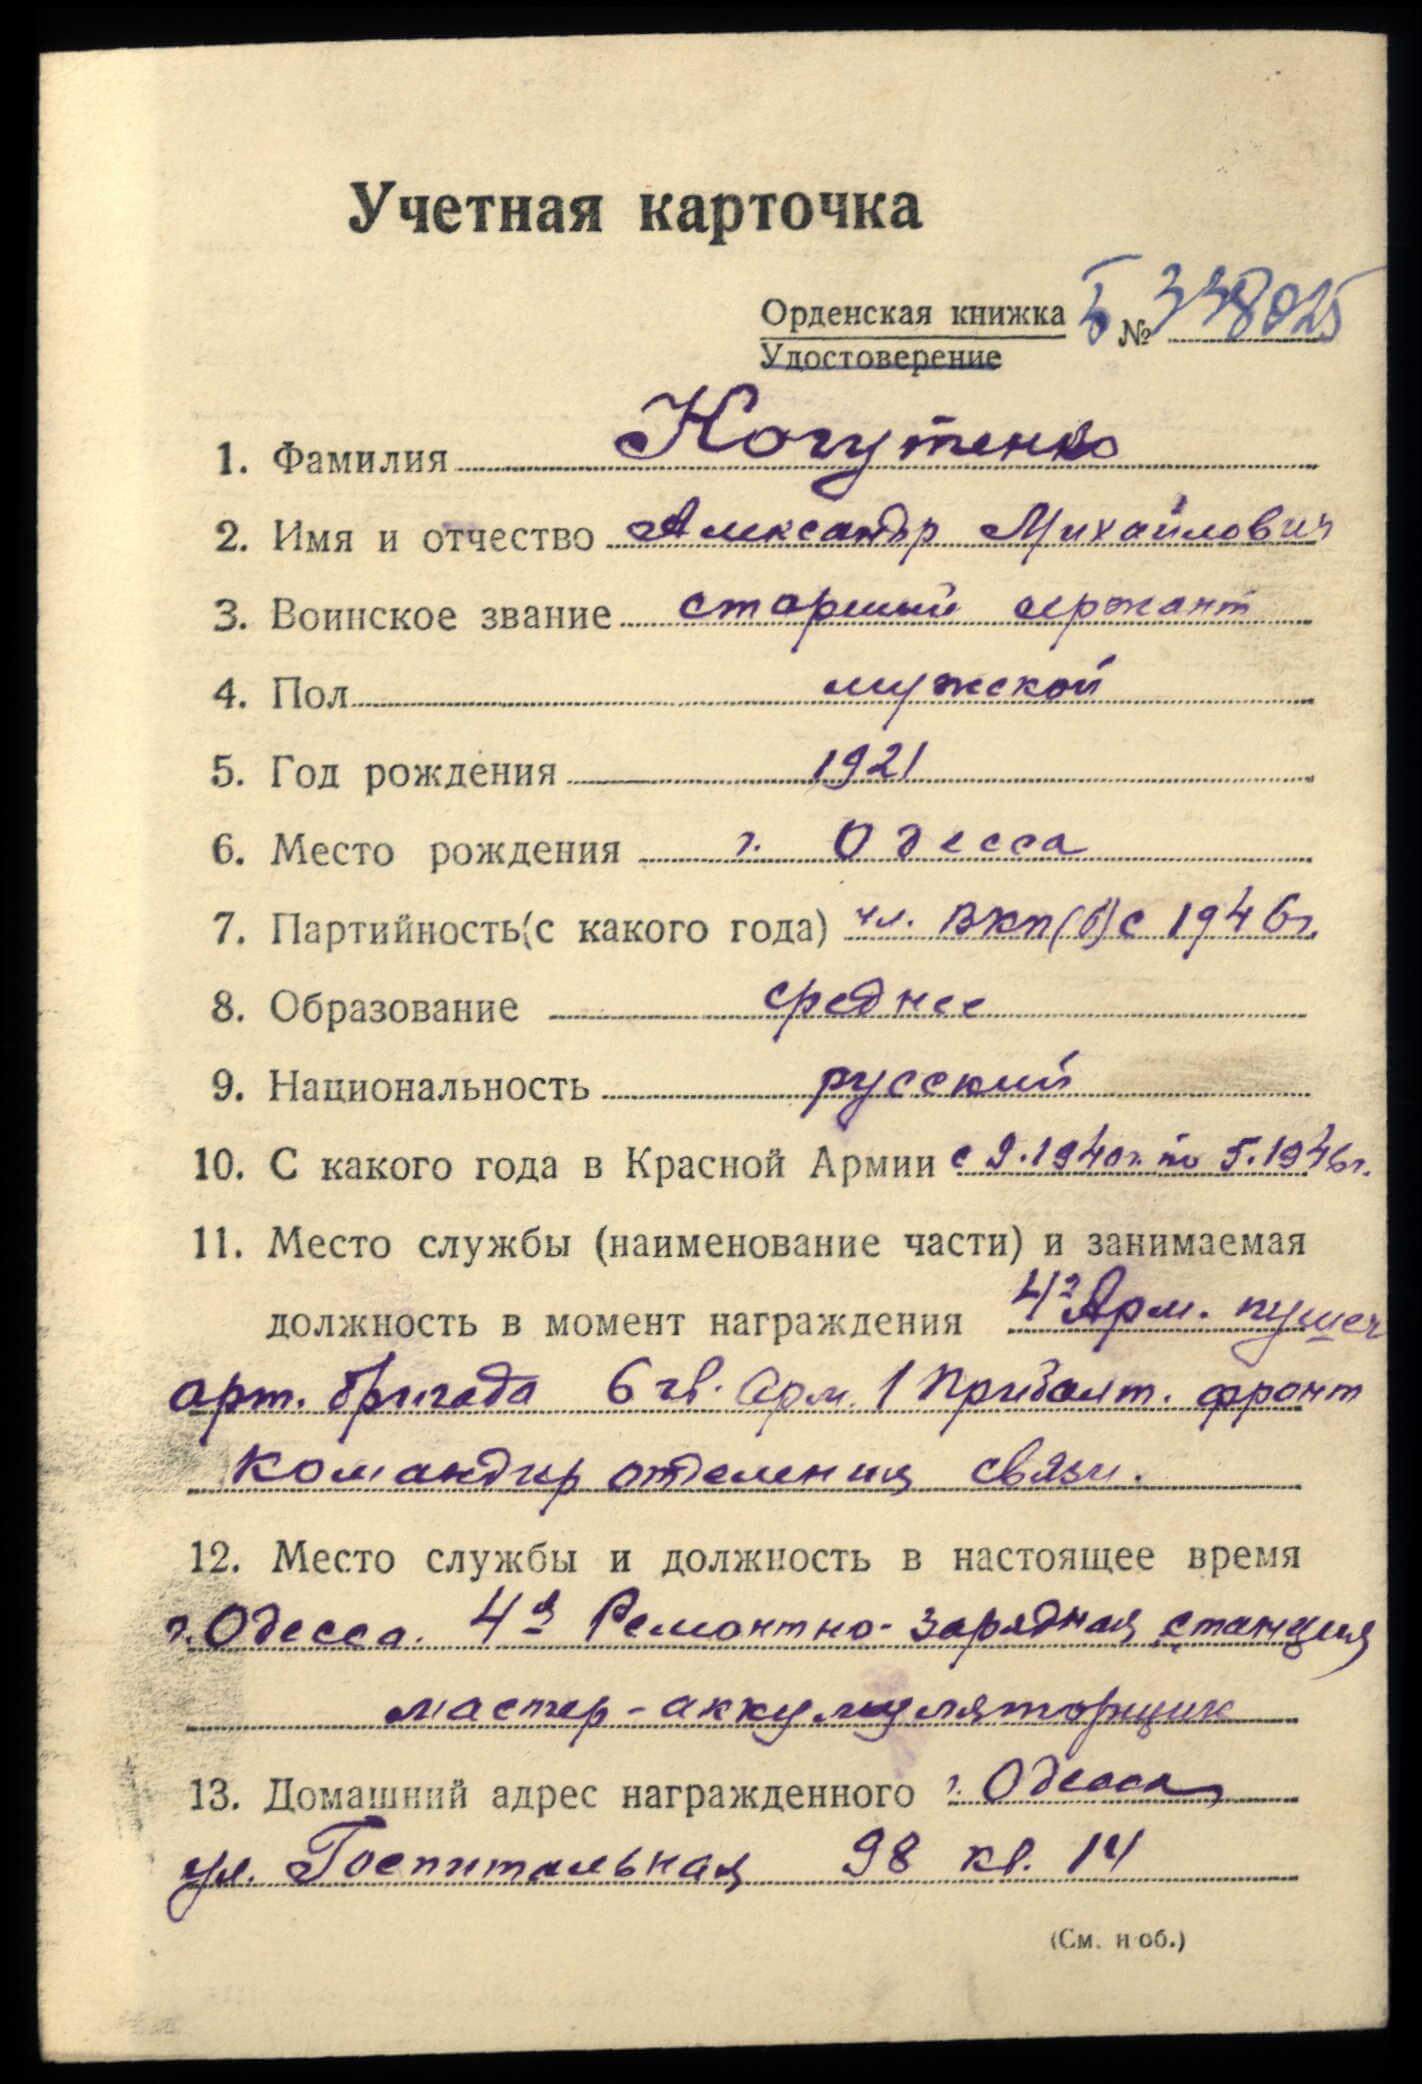 Учетная карточка
Орденская книжка Б № 338025
Удостоверение
1. Фамилия Когутенко
2. Имя и отчество Александр Михайлович
3. Воинское звание старший сержант
4. Пол мужской
5. Год рождения 1921
6. Место рождения г. Одесса
7. Партийность (с какого года) чл. ВКП(б) с 1946 г.
8. Образование среднее
9. Национальность русский
10. С какого года в Красной Армии с 9.1940 г. по 5.1946 г.
11. Место службы (наименование части) и занимаемая
должность в момент награждения 4я Арм. пушеч
арт. бригада 6 гв. Арм. 1 Прибалт. фронт
командир отделения связи.
12. Место службы и должность в настоящее время
г. Одесса. 4я Ремонтно-зарядная станция
мастер-аккумуляторщик
13. Домашний адрес награжденного г. Одесса,
ул. Госпитальная 98 кв. 14
(См. н об.)